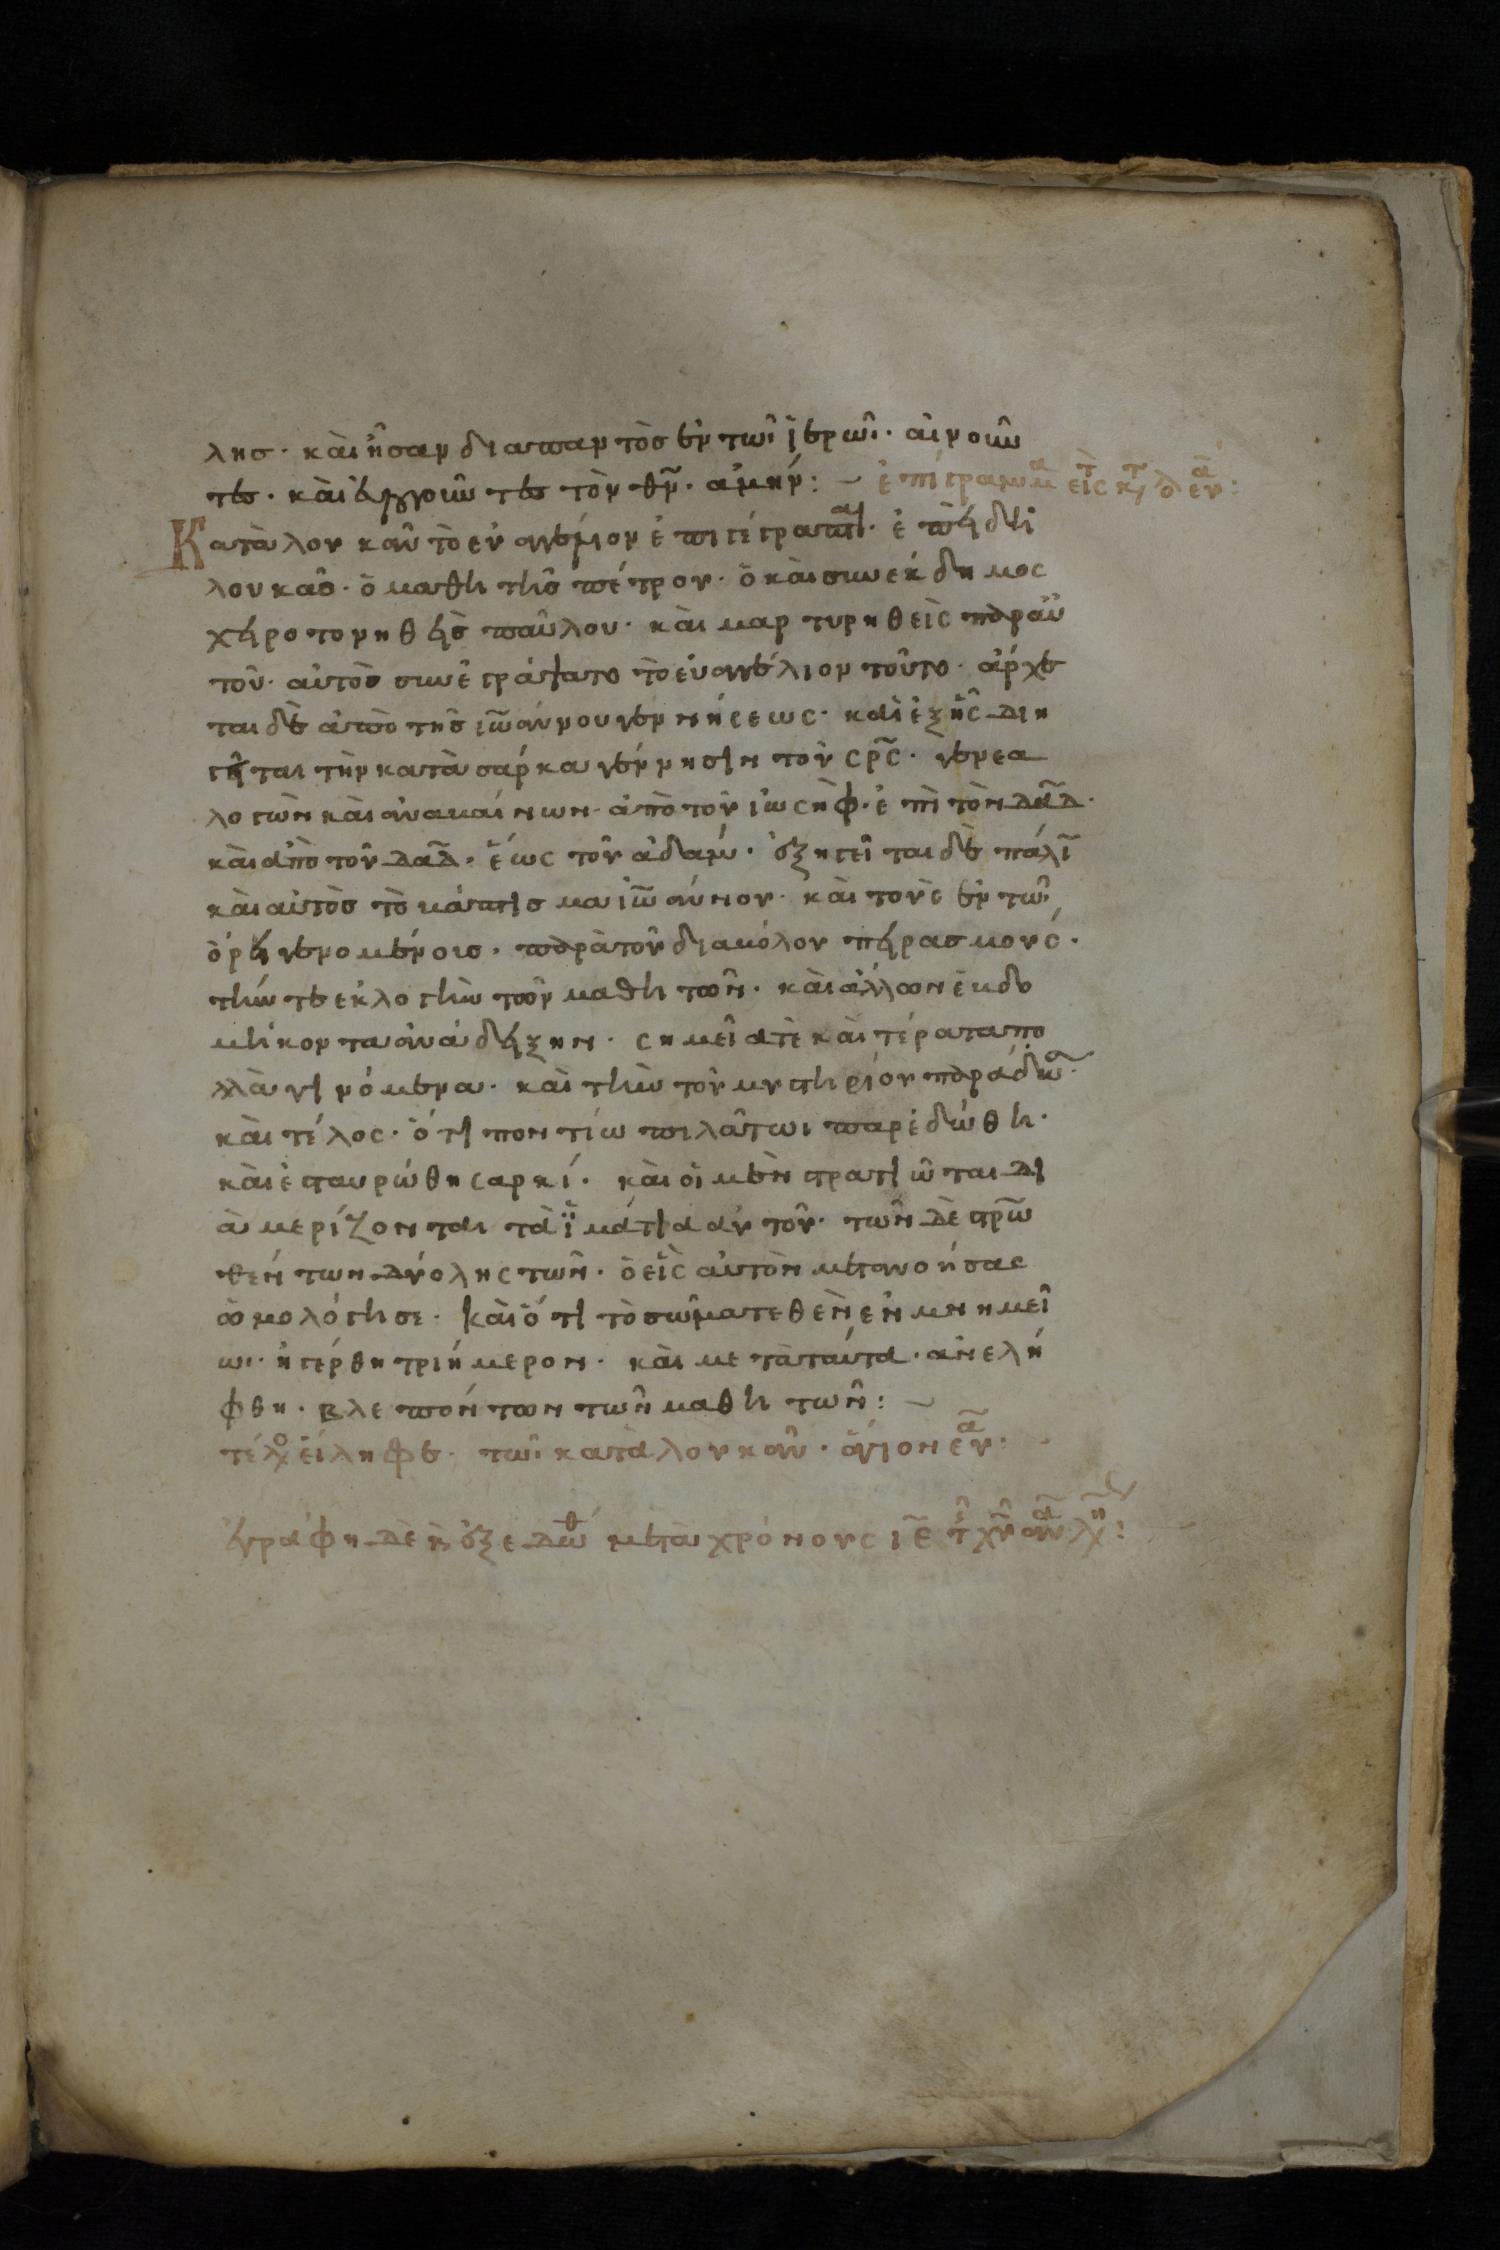 λησ· καὶ ἦσαν διαπαντὸσ ἐν τῶι ἱερῶι· αἰνοῦν
τεσ· καὶ εὐλογοῦντεσ τὸν θν̅· ἀμήν: ~ ἐπίγραμμα εἰς τ κτ λ εὐα:
Κατὰ λουκᾶν τὸ εὐαγγέλιον ἐπιγέγραπται· ἐπεὶδὴ
λουκᾶσ· ὁ μαθητὴσ πέτρου· ὁ καὶ συνέκδημος
χειροτονηθεὶσ παῦλου· καὶ μαρτυρηθεὶς παραὐ
τοῦ· αὐτὸσ συνεγράψατο τὸ εὐαγγέλιον τοῦτο· ἄρχε
ται δὲ ἀπὸ τῆσ ἰω̅άννου γεννήσεως· καὶ ἑξῆς διη
γῆται τὴν κατὰ σάρκα γέννησιν τοῦ σρ̅ς· γενεα
λογῶν καὶ ἀνακαίνων· ἀπὸ τοῦ ἰωσὴφ· ἐπὶ τὸν δα̅δ·
καὶ ἀπὸ τοῦ δα̅δ· ἕως τοῦ ἀδάμ· ἐξηγεῖται δὲ πάλι̅
καὶ αὐτὸσ τὸ βάπτισμα ἰω̅άννου· καὶ τοὺς ἐν τῶι
ὄρει γενομένοισ· παρὰ τοῦ διαβόλου πειρασμούς·
τήν τε ἐκλογὴν τῶν μαθητῶν· καὶ ἄλλων ἑβδο
μήκοντα ἀνάδειξην· σημεῖά τὲ καὶ τέρατα πο
λλὰ γινόμενα· καὶ τὴν τοῦ μυστηρίου παράδω·
καὶ τέλος· ὅτι ποντίω πιλάτωι παρεδώθη·
καὶ ἐσταυρώθη σαρκί· καὶ οἱ μὲν στρατιῶται δι
ὰμερίζονται τὰ ἱμάτια αὐτοῦ· τῶν δὲ στρω̅
θέντων δύο ληςτῶν· ὁ εἷς αὐτὸν μετανοήσας
ὡμολόγησε· καὶ ὅτι τὸ σῶμα τεθὲν ἐν μνημεί
ωι· ἠγέρθη τριήμερον· καὶ μετὰ ταύτα· ἀνελή
φθη· βλεπόντων τῶν μαθητῶν: ~
τέλος εἴληφε· τῶι κατὰ λουκᾶν· ἅγιον εὐα·
ἐγράφη δὲ κ ἐξεδώθ μετὰ χρόνους ιε̅ τῆ χυ̅ ἀναλχη: